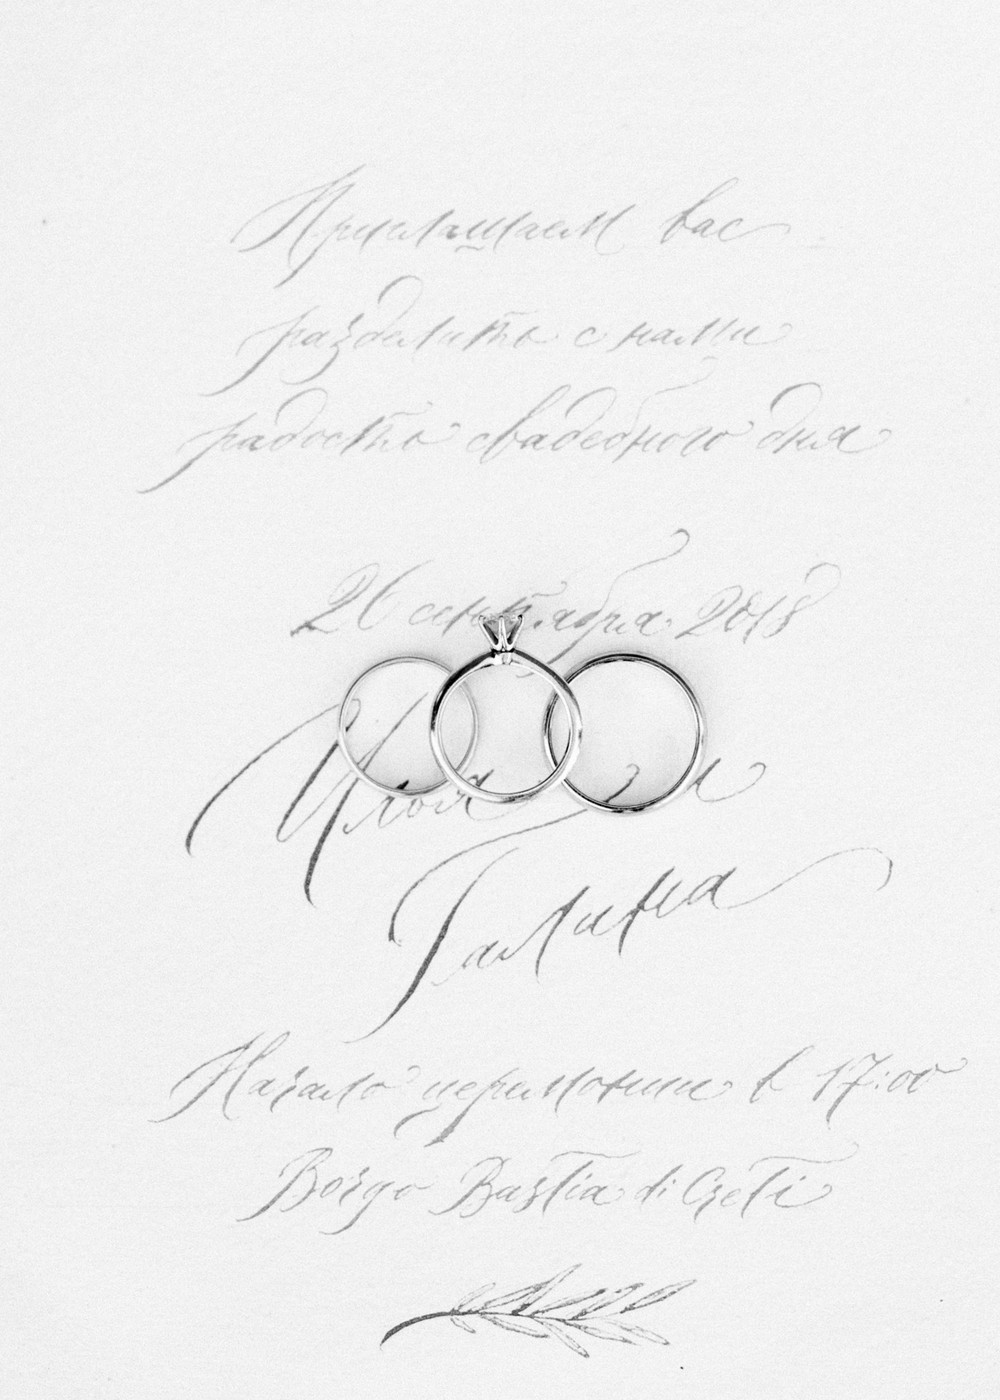 Приглашаем вас
разделить с нами
радость свадебного дня
26 сентября 2018
Илья и
Галина
Начало церемонии в 17:00
Borgo Bastia di Creti